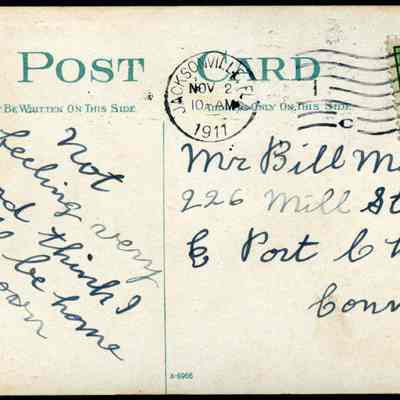 POST CARD
BE WRITTEN ON THIS SIDE
ONLY ON THIS SIDE
JACKSONVILLE, FL
NOV 2
10 AM
1911
C
Not
feeling very
and think I
be home
soon
Mr Bill M
226 Mill St
E Port Ch
Conn
A-6966